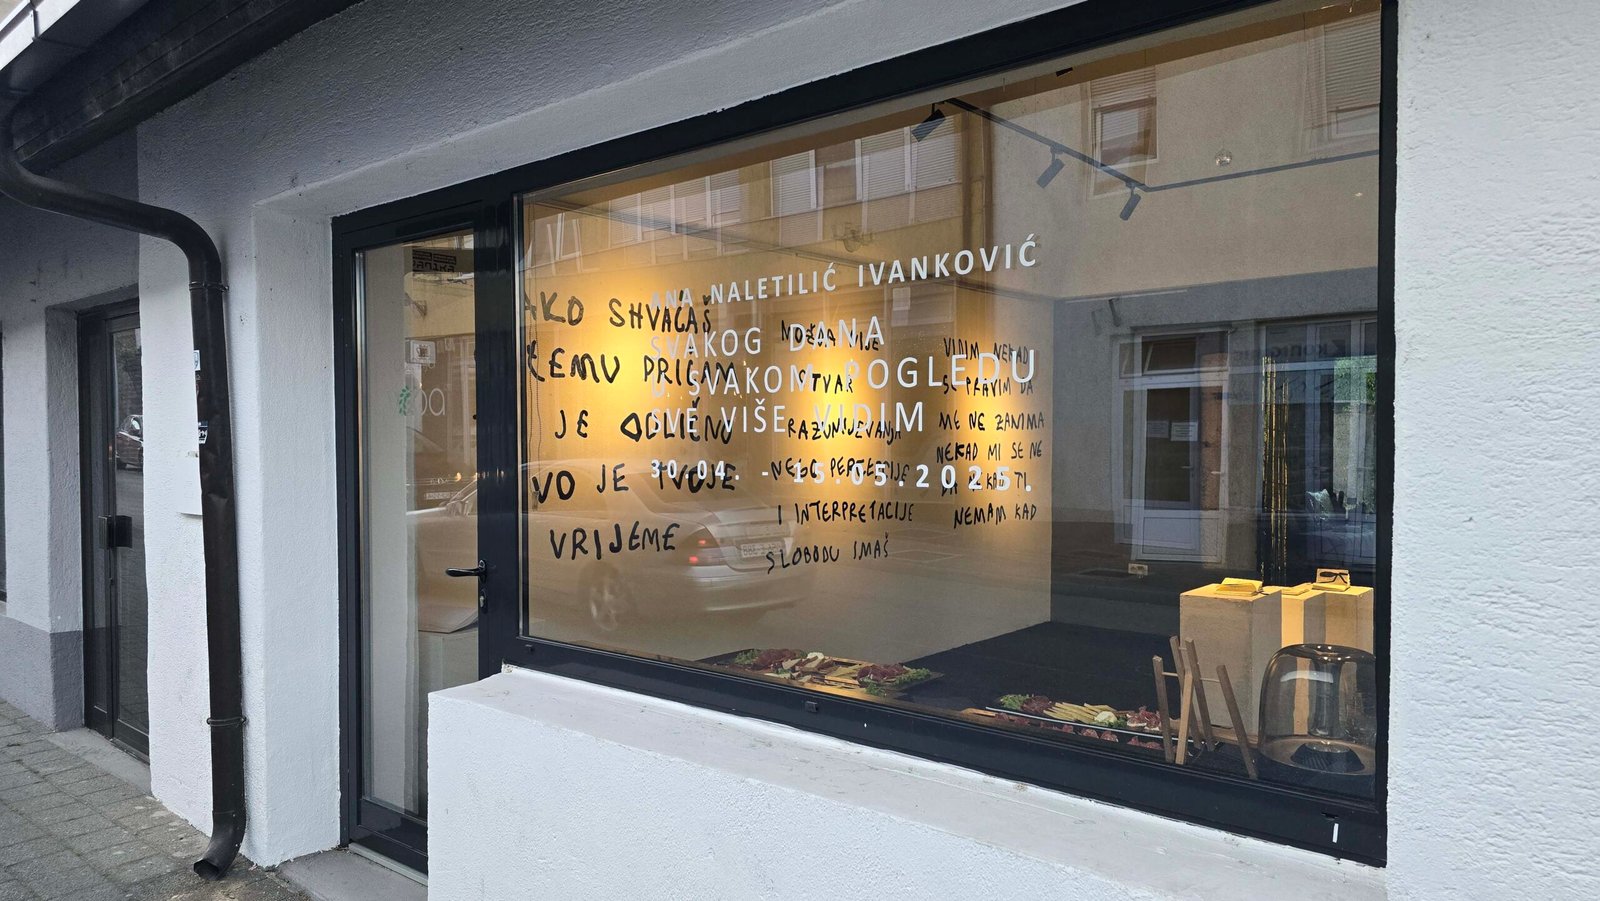 ANA NALETILIĆ IVANKOVIĆ
SVAKOG DANA
U SVAKOM POGLEDU
SVE VIŠE VIDIM
30.04. - 15.05.2025.
AKO SHVAĆAŠ
ČEMU PRIČAM
JE ODLIČNO
VO JE TVOJE
VRIJEME
MOŽDA NIJE
STVAR
RAZUMIJEVANJA
NEGO PERCEPCIJE
I INTERPRETACIJE
SLOBODU IMAŠ
VIDIM NEKAD
SE PRAVIM DA
ME NE ZANIMA
NEKAD MI SE NE
DA NEKAD TI
NEMAM KAD